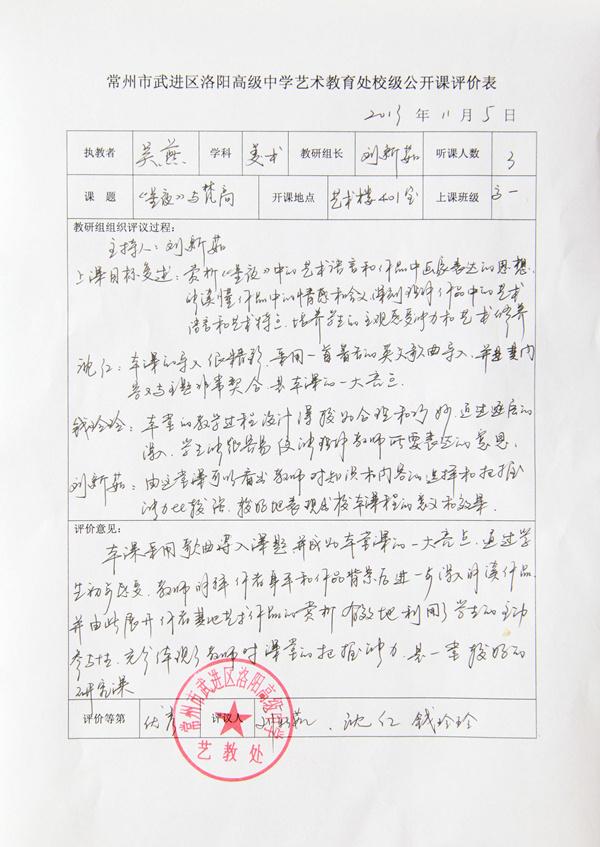 常州市武进区洛阳高级中学艺术教育处校级公开课评价表
2013 年 11 月 5 日
执教者 吴燕 学科 美术 教研组长 刘新茹 听课人数 3
课 题 《星夜》与梵高 开课地点 艺术楼401室 上课班级 高一
教研组组织评议过程:
主持人:刘新茹
上课目标复述:赏析《星夜》中的艺术语言和作品中画家表达的思想
能读懂作品中的情感和含义,学到赏评作品中的艺术
语言和艺术特点,培养学生的主观感受能力和艺术修养
沈仁:本课的导入很精彩,采用一首著名的英文歌曲导入,并且其内
容又与主题非常契合,是本课的一大亮点
钱玲玲:本堂的教学过程设计得较为合理和巧妙,通过逐层的
深入,学生能很容易领会教师所要表达的意思
刘新茹:由这堂课可以看出教师对知识和内容的选择和把握
能力比较强,较好地表现出校本课程的意义和效果
评价意见:
本课采用歌曲导入课题并成为本堂课的一大亮点,通过学
生初步感受,教师讲解作者生平和作品背景后进一步深入解读作品
并由此展开作者其他艺术作品的赏析,有效地利用了学生的主动
参与性,充分体现了教师对课堂的把握能力,是一堂较好的
研究课
评价等第 优秀 评议人 刘新茹、沈仁 钱玲玲
常州市武进区洛阳高级中学
艺教处